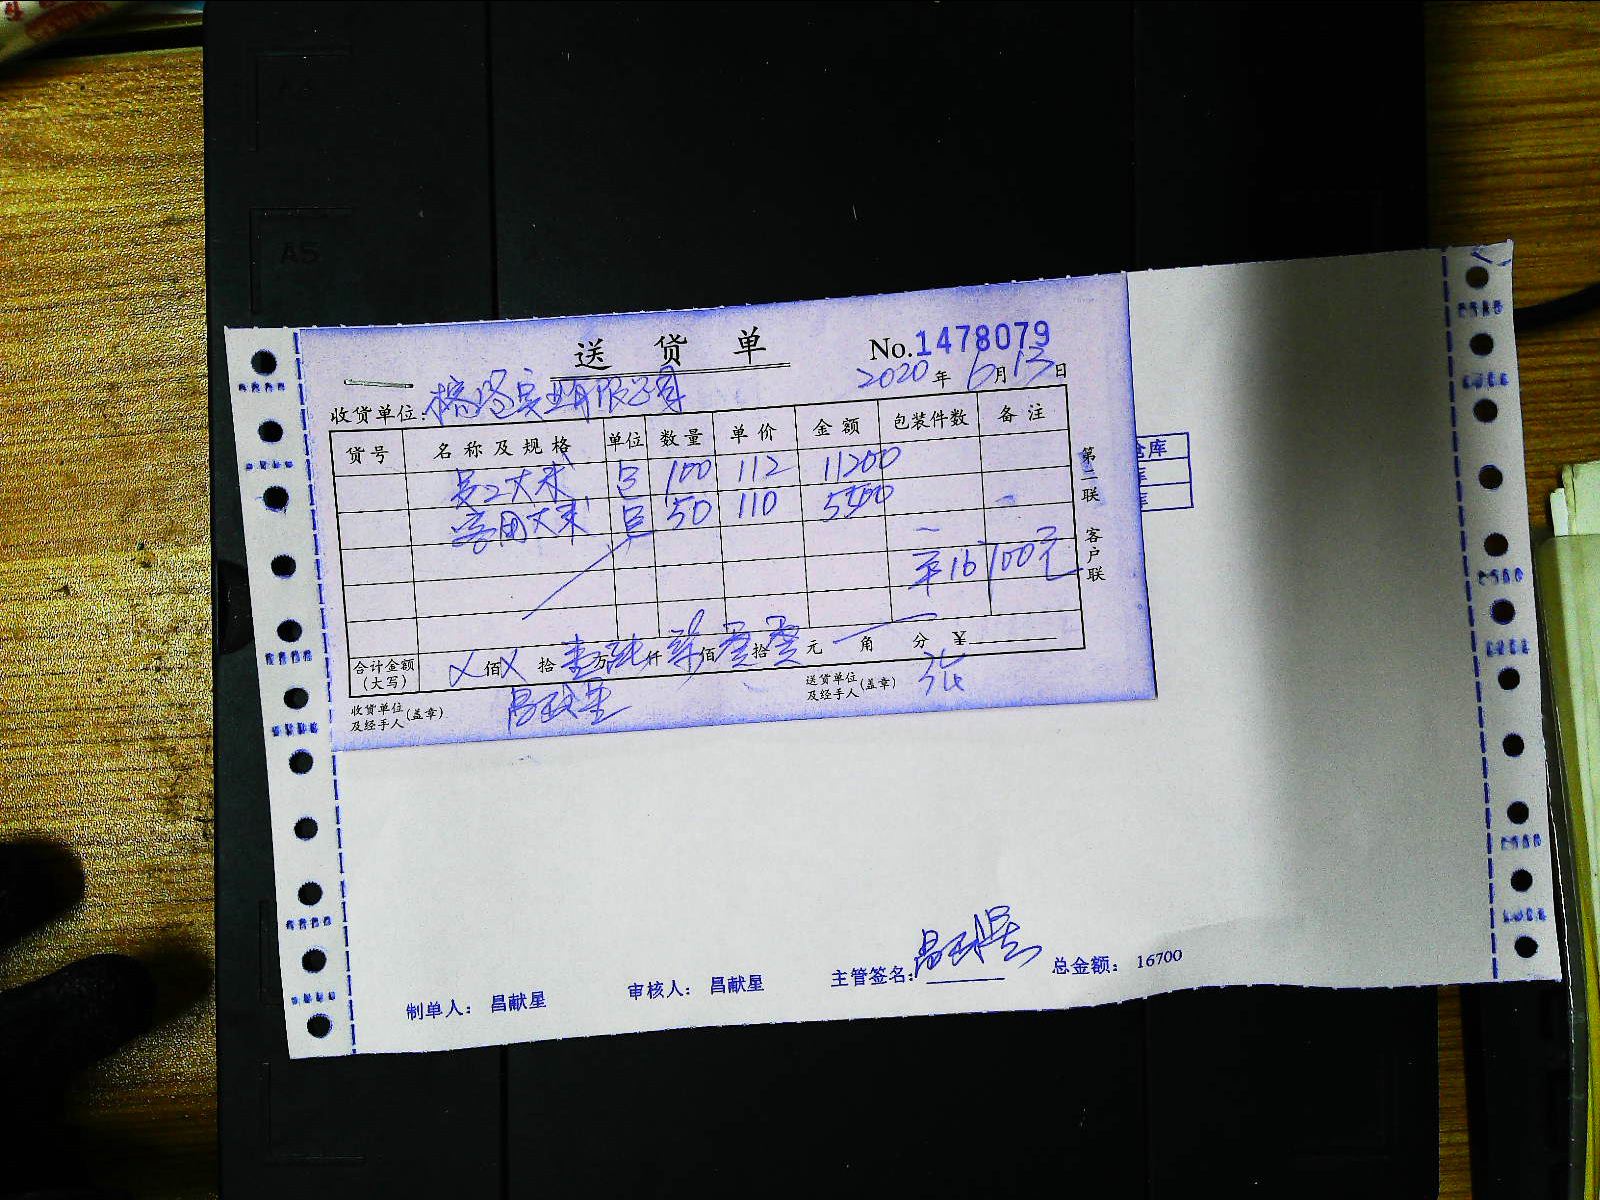 A5
送货单
No.1478079
2020年6月13日
收货单位: 实业有限公司
货号 名称及规格 单位 数量 单价 金额 包装件数 备注
员工大米 包 100 112 11200
客用大米 包 50 110 5500
16700元
合计金额(大写) 佰 拾 壹万 陆仟 柒佰 零拾 零元 角 分 ¥
收货单位及经手人(盖章) 昌献星
送货单位及经手人(盖章) 张
第二联 客户联
仓库
库
库
制单人: 昌献星 审核人: 昌献星 主管签名: 昌献星 总金额: 16700